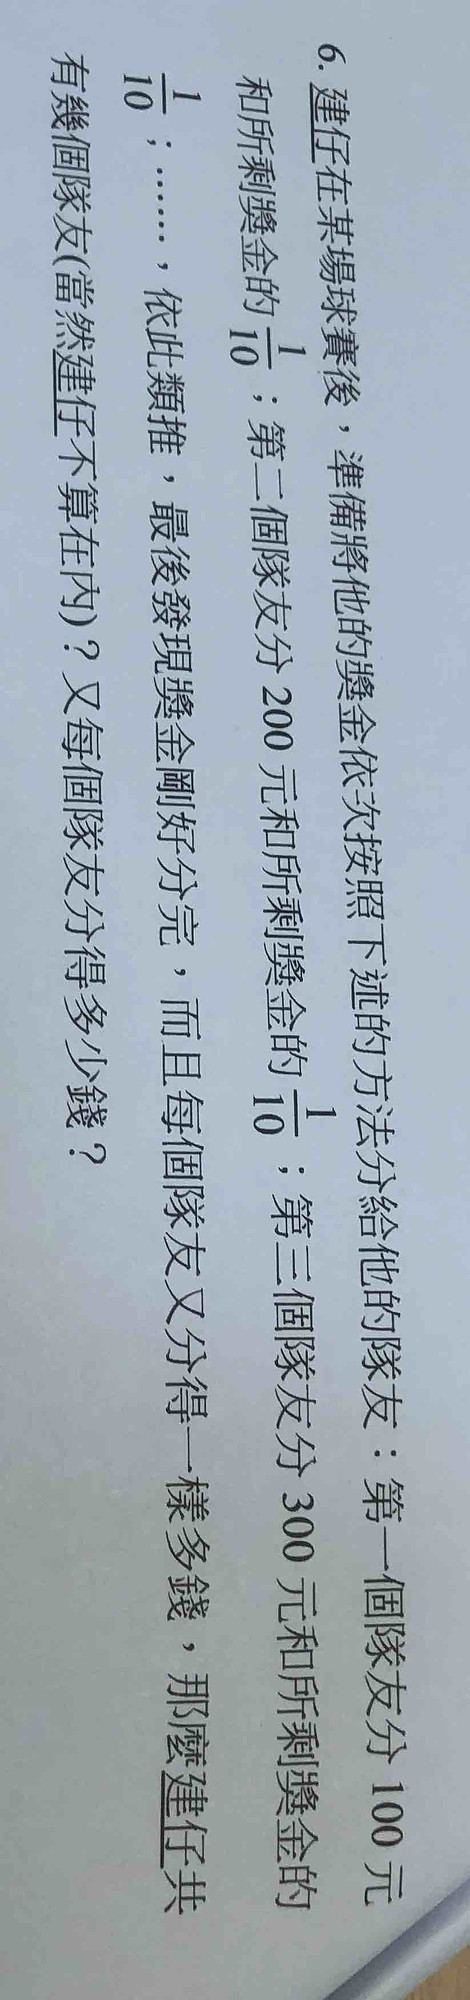 6. 建仔在某場球賽後，準備將他的獎金依次按照下述的方法分給他的隊友：第一個隊友分 100 元
和所剩獎金的 1/10；第二個隊友分 200 元和所剩獎金的 1/10；第三個隊友分 300 元和所剩獎金的
1/10；……，依此類推，最後發現獎金剛好分完，而且每個隊友又分得一樣多錢，那麼建仔共
有幾個隊友(當然建仔不算在內)？又每個隊友分得多少錢？